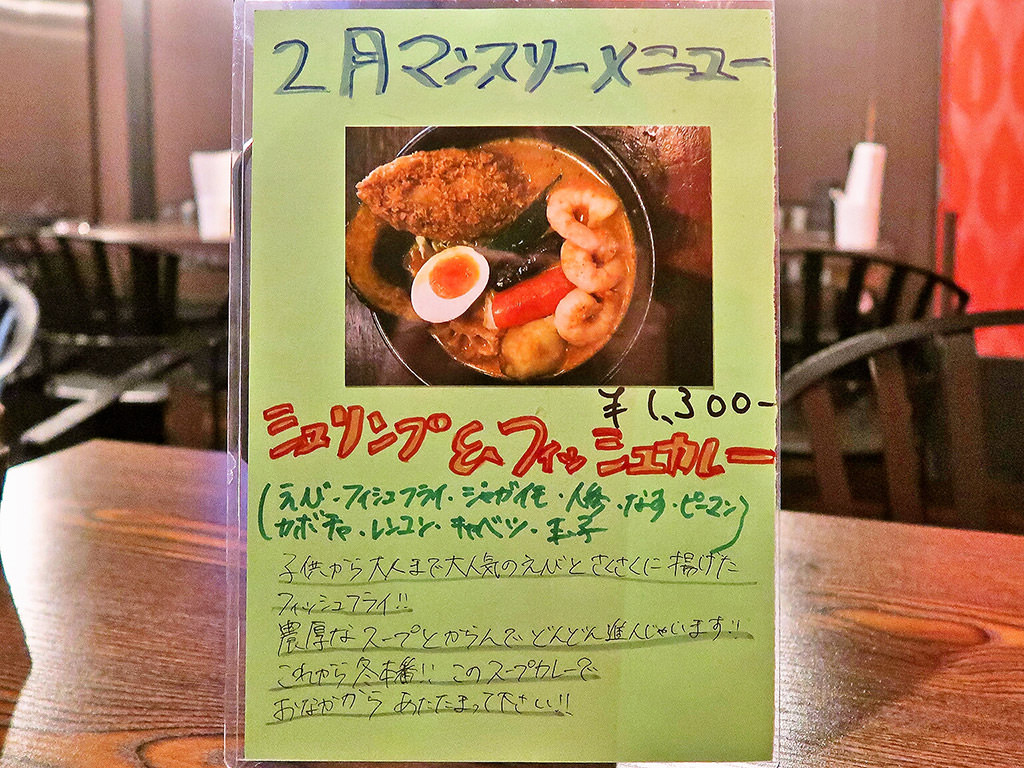 2月マンスリーメニュー
¥1,300-
シュリンプ&フィッシュカレー
(えび・フィシュフライ・ジャガイモ・人参・なす・ピーマン
カボチャ・レンコン・キャベツ・玉子)
子供から大人まで大人気のえびとさくさくに揚げた
フィッシュフライ!!
濃厚なスープとからんでどんどん進んじゃいます!!
これから冬本番!! このスープカレーで
おなかから あたたまって下さい!!